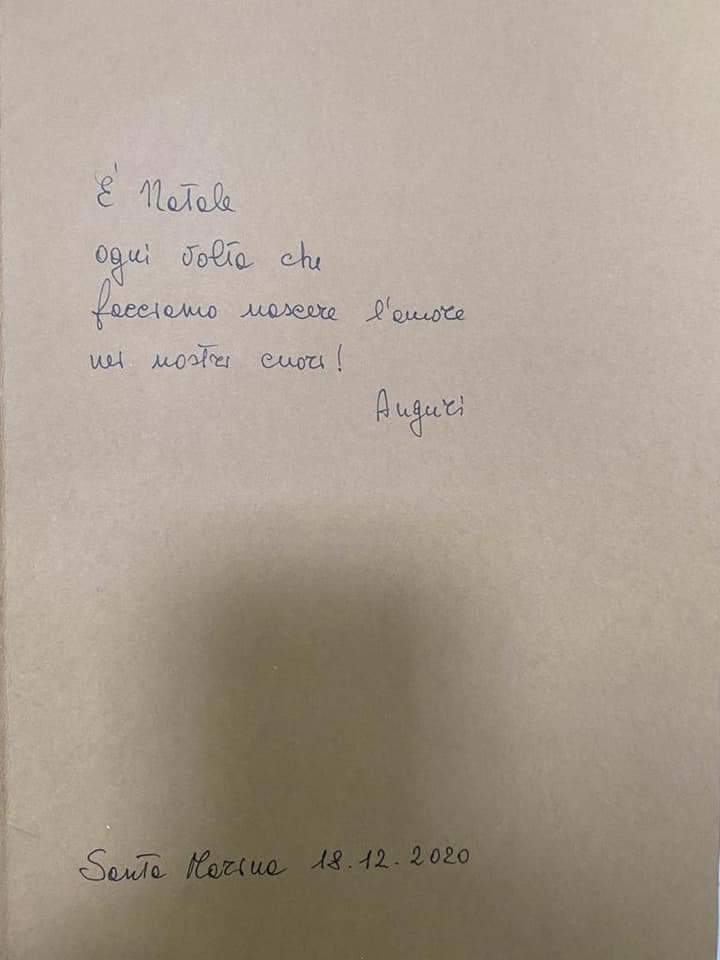 É Natale
ogni volta che
facciamo nascere l'amore
nei nostri cuori!
Auguri
Santa Marina 18.12.2020